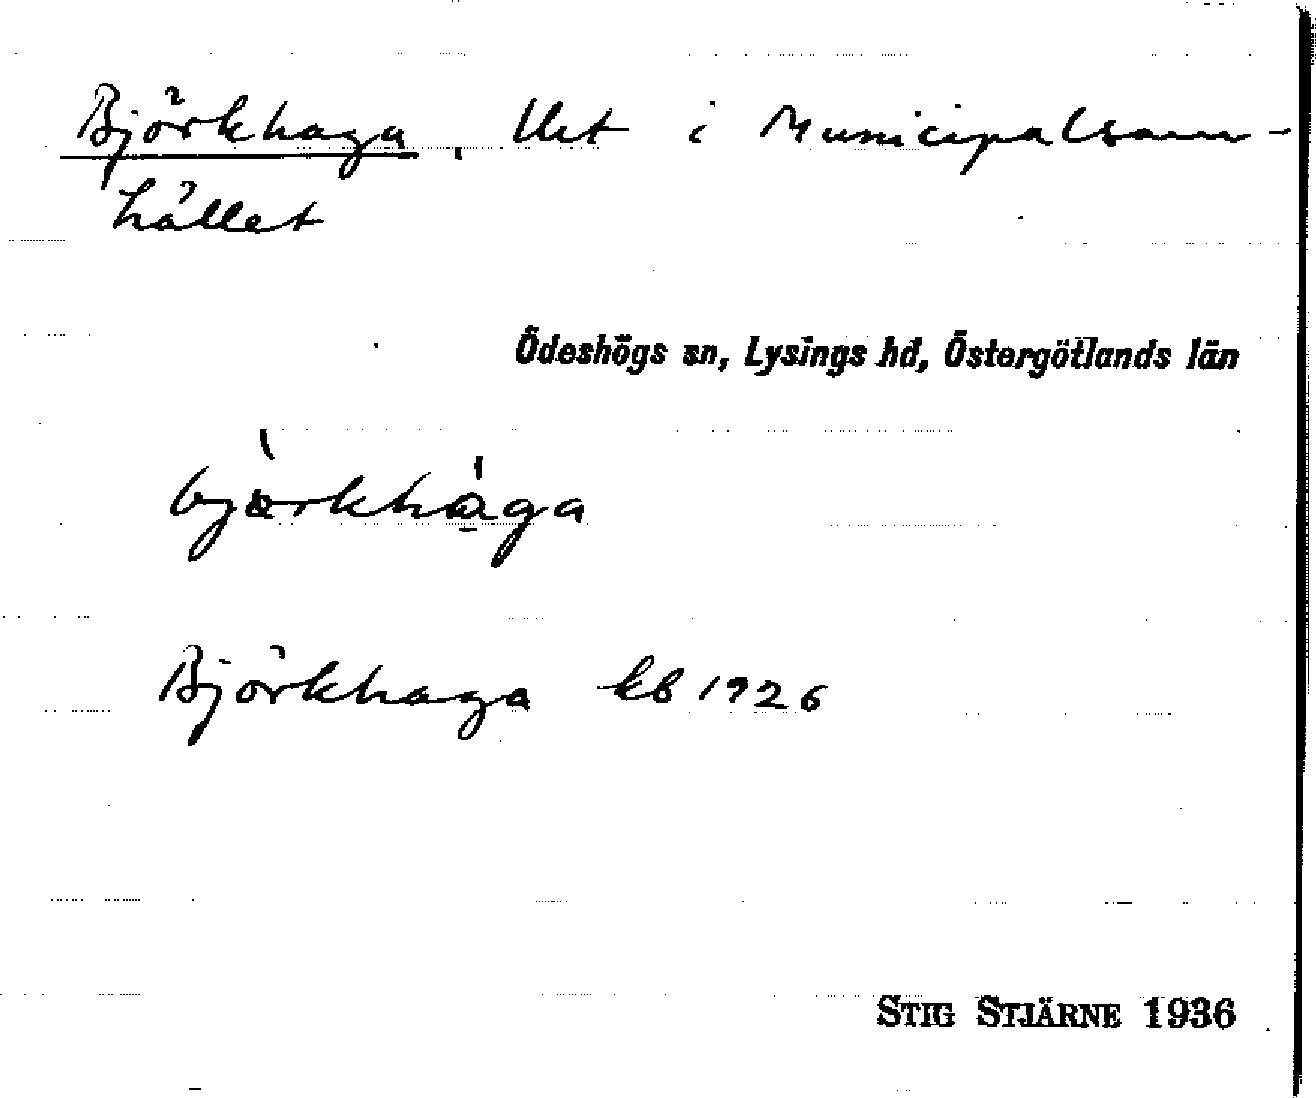 Björkhaga, lht i Municipalsam-
hället
Ödeshögs sn, Lysings hd, Östergötlands län
bjɵ̀rkhága
Björkhaga kb 1926
STIG STJÄRNE 1936